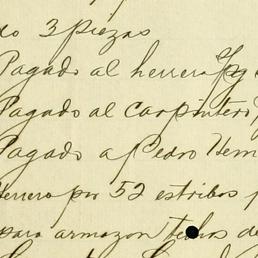 do 3 piezas
Pagado al herrero
Pagado al carpintero
Pagado a Pedro Hern
Herrero por 52 estribos p
para armazon techos de